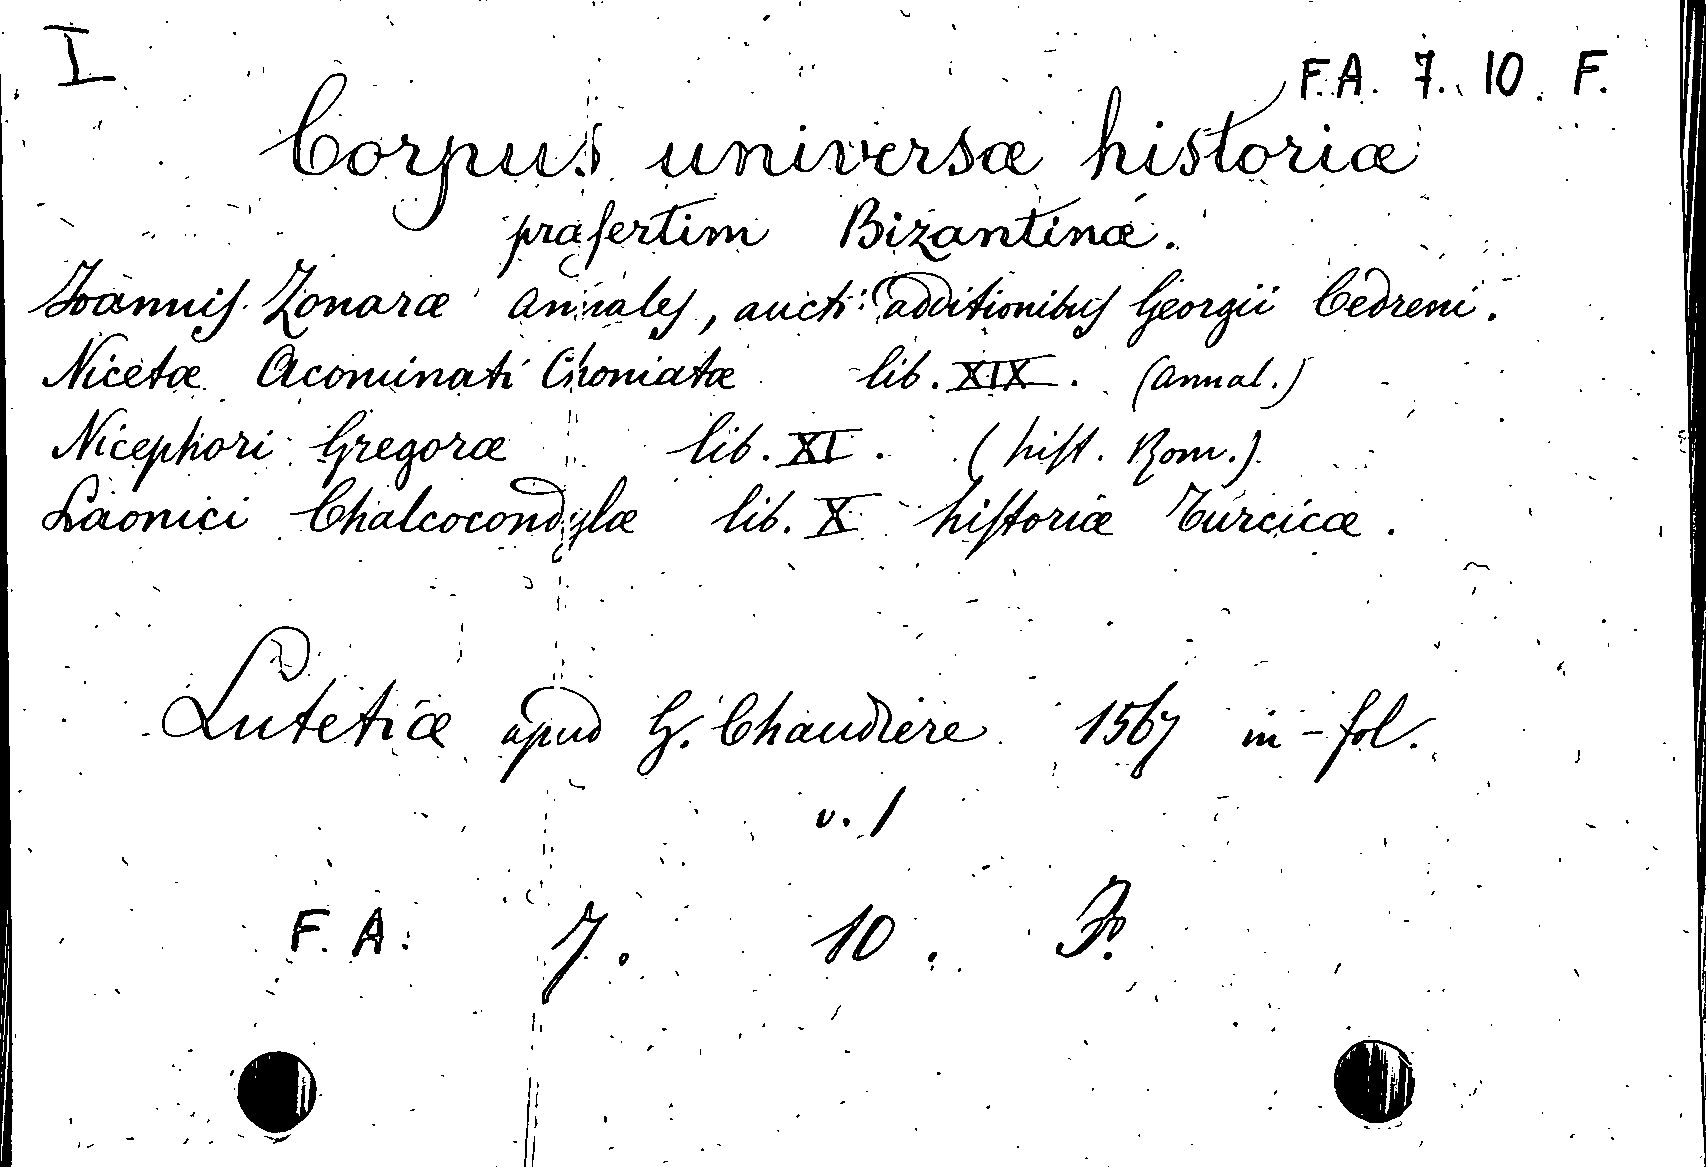 I
F.A. 7. 10. F.
Corpus universæ historiæ
præsertim Bizantinæ.
Ioannis Zonaræ annales, aucti additionibus Georgii Cedreni.
Nicetæ Acominati Choniatæ lib. XIX. (annal.)
Nicephori Gregoræ lib. XI. (hist. Rom.)
Laonici Chalcocondylæ lib. X historiæ Turcicæ.
Lutetiæ apud G. Chaudiere 1567 in-fol.
v. 1
F. A. 7. 10. F.